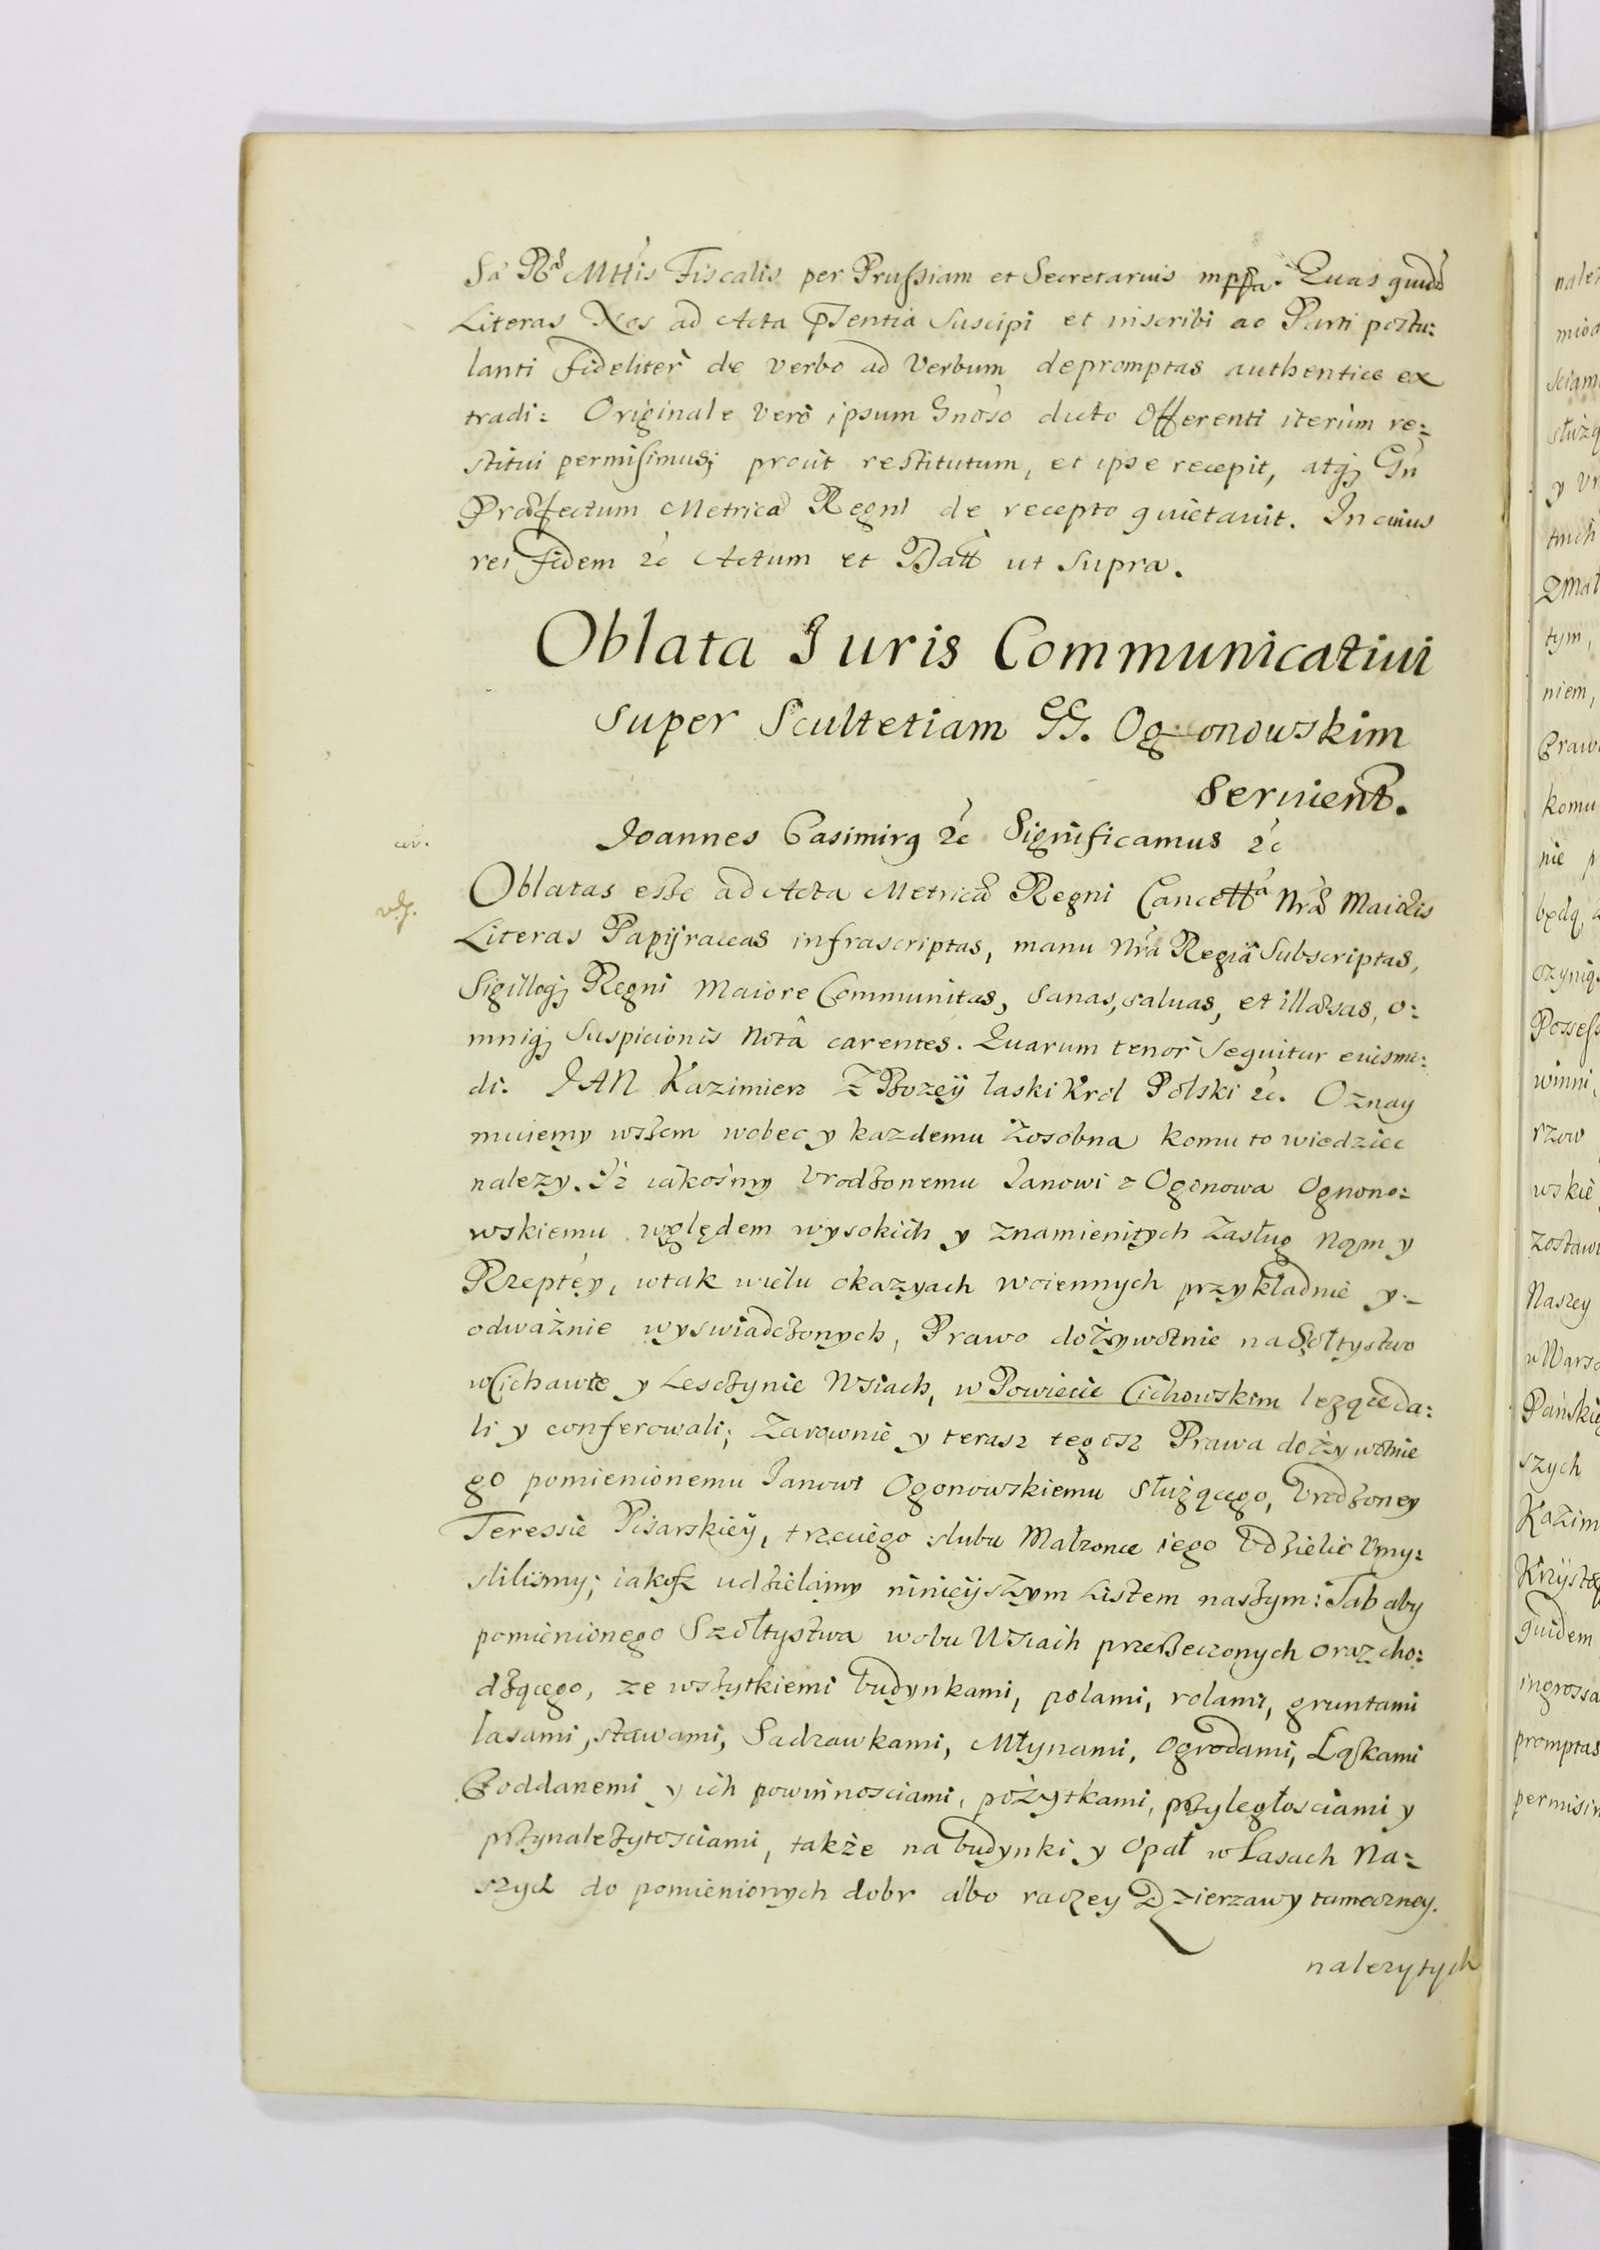 Sa Rę Mttis Fiscalis per Prussiam et Secretarius mppa. Quas quidē
Literas Nos ad Acta pſentia Suscipi et inscribi ac Parti postu:
lanti fideliter de verbo ad Verbum depromptas authentice ex
tradi: Originale vero ipsum Gnoso dicto Offerenti iterum re:
stitui permisimus; prout restitutum, et ipse recepit, atq; Gn
Præfectum Metricæ Regni de recepto quietavit. In cuius
rei fidem &c Actum et Datt ut Supra.
Oblata Iuris Communicatiui
super Scultetiam GG. Ogonowskim
seruient.
Joannes Casimirq &c Significamus &c
cor.
Oblatas esse ad Acta Metricæ Regni Cancellª Nræ Maioris
Literas Papijraceas infrascriptas, manu Nra Regiâ Subscriptas,
Sigilloq; Regni Maiore Communitas, Sanas, saluas, et illæsas, o:
mniq; Suspicionis Notâ carentes. Quarum tenor Sequitur eiusmo:
di. JAN Kazimierz Z Bozeÿ łaski Krol Polski &c. Oznay
muiemy wszem wobec y kazdemu Zosobna komu to wiedziec
nalezy. Iż iakosmy Vrodzonemu Janowi z Ogonowa Ognono:
wskiemu względem wysokich y znamienitych Zasług Nąm y
Rzeptey, wtak wielu okazyach woiennych przykładnie y
odważnie wyswiadczonych, Prawo dożywotnie na Sołtystwo
wCichawie y Lesczynie Wsiach, w Powiecie Cichowskim lezące da:
li y conferowali; Zarownie y terasz tegosz Prawa dożywotnie
go pomienionemu Janowi Ogonowskiemu służącego, Vrodzoney
Teressie Pisarskieÿ, trzeciego slubu Malzonce iego Vdzielić Vmy:
slilismy; iakosz udzielamy ninieÿszym Listem naszym: Tak aby
pomienionego Szołtystwa wobu Wsiach przerzeczonych oraz cho:
dzącego, ze wszytkiemi budynkami, polami, rolami, gruntami
lasami, stawami, Sadzawkami, Młynami, ogrodami, Ląskami
Poddanemi y ich powinnosciami, pożytkami, przyległosciami y
przynależytosciami, także na budynki y Opał w Lasach Na:
szych do pomienionych dobr albo raczey Dzierzawy tameczney.
nalezytych